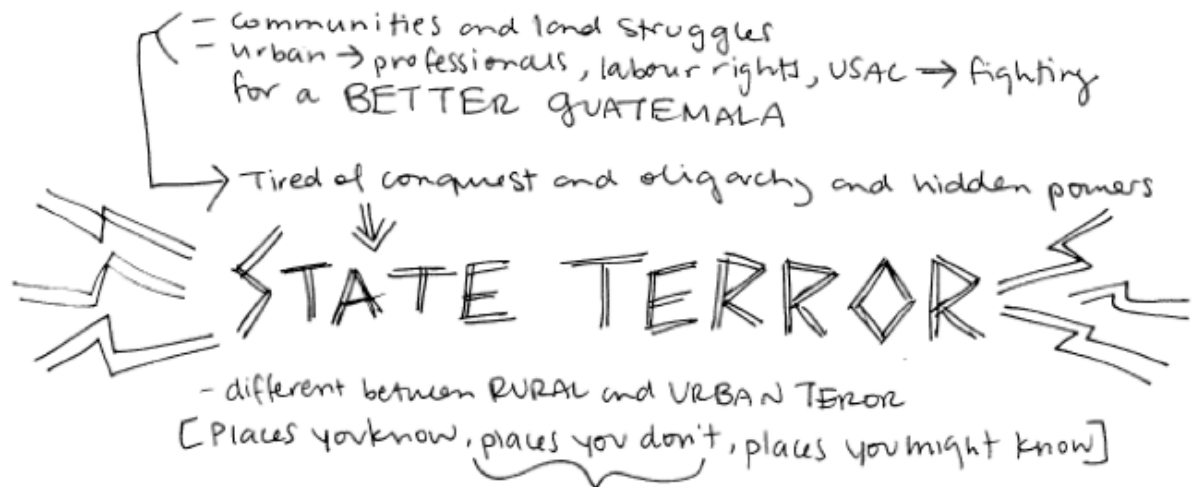 - communities and land struggles
- urban → professionals, labour rights, USAC → fighting
for a BETTER GUATEMALA
→ Tired of conquest and oligarchy and hidden powers
STATE TERROR
- different between RURAL and URBAN TEROR
[Places you know, places you don't, places you might know]